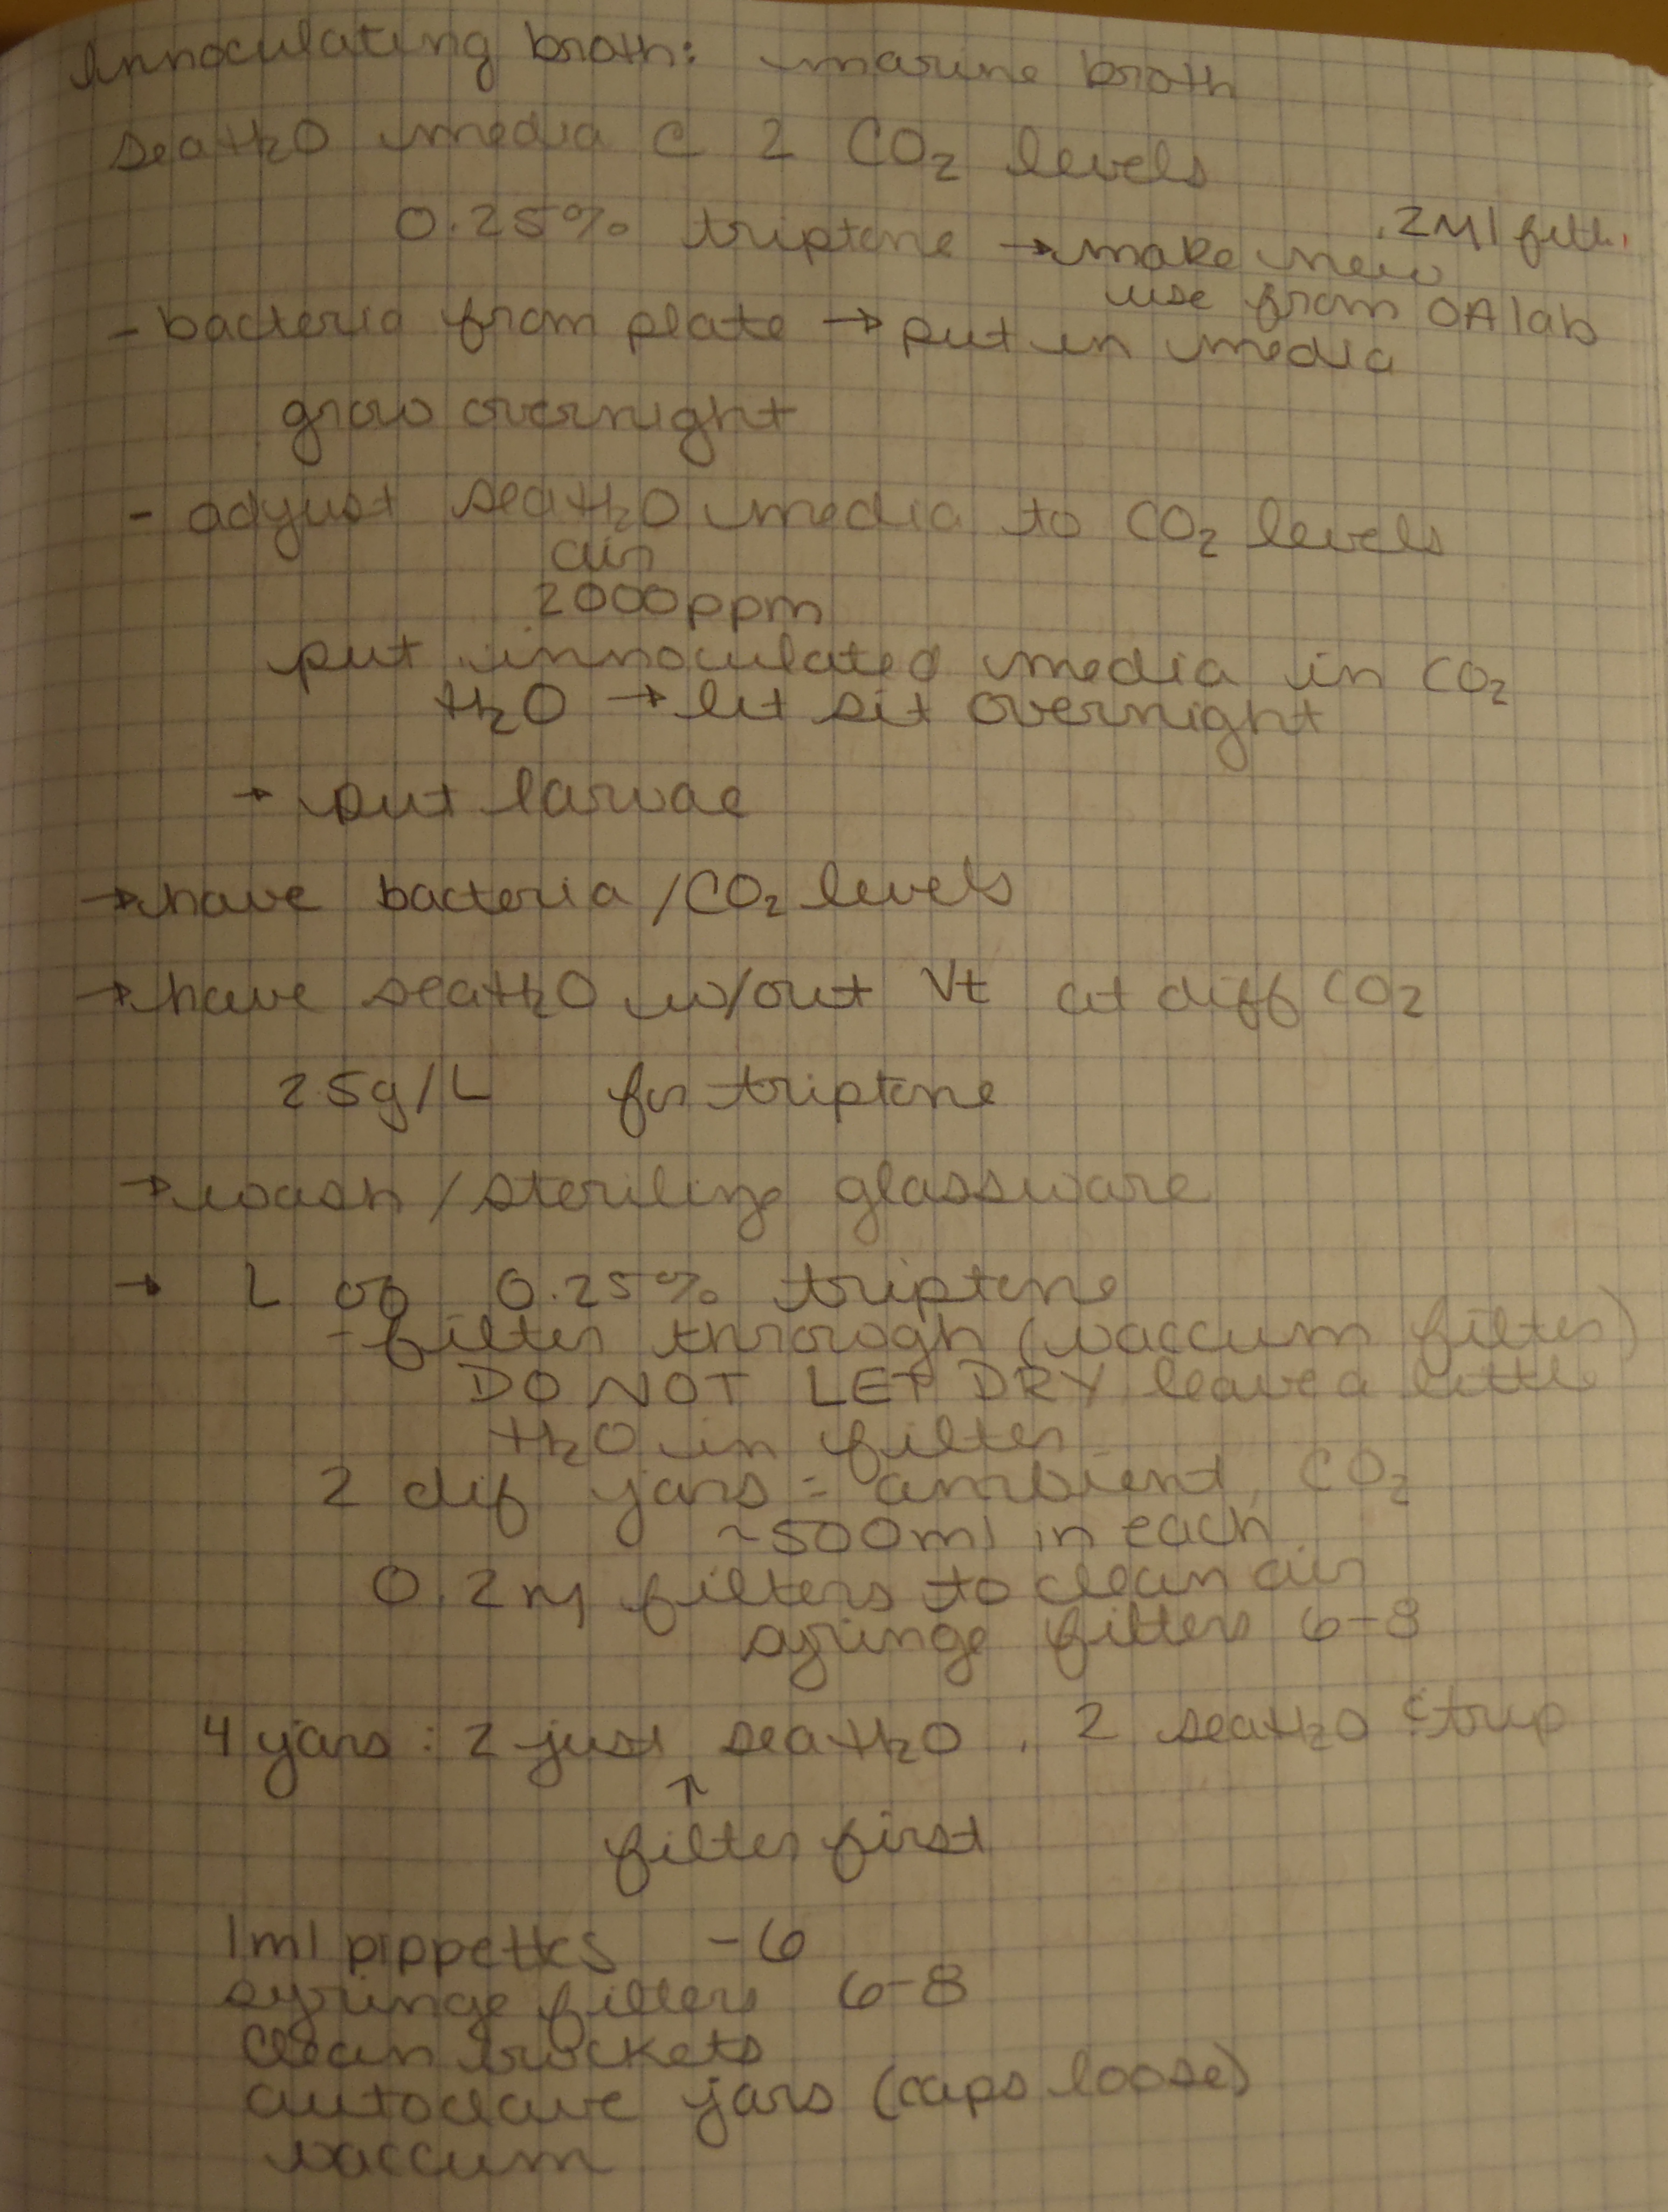 Innoculating broth: marine broth
seaH2O media c 2 CO2 levels
0.25% triptone → make new .2μl filt.
use from OA lab
- bacteria from plate → put in media
grow overnight
- adjust seaH2O media to CO2 levels
air
2000ppm
put innoculated media in CO2
H2O → let sit overnight
→ put larvae
→ have bacteria / CO2 levels
→ have seaH2O w/out Vt at diff CO2
25g/L for triptone
→ wash / sterilize glassware
→ L of 0.25% triptone
- filter through (vaccum filter)
DO NOT LET DRY leave a little
H2O in filter
2 dif jars = ambient, CO2
~500ml in each
0.2μ filters to clean air
syringe filters 6-8
4 jars : 2 just seaH2O , 2 seaH2O c trip
↑
filter first
1ml pippettes - 6
syringe filters 6-8
Clean buckets
autoclave jars (caps loose)
vaccum